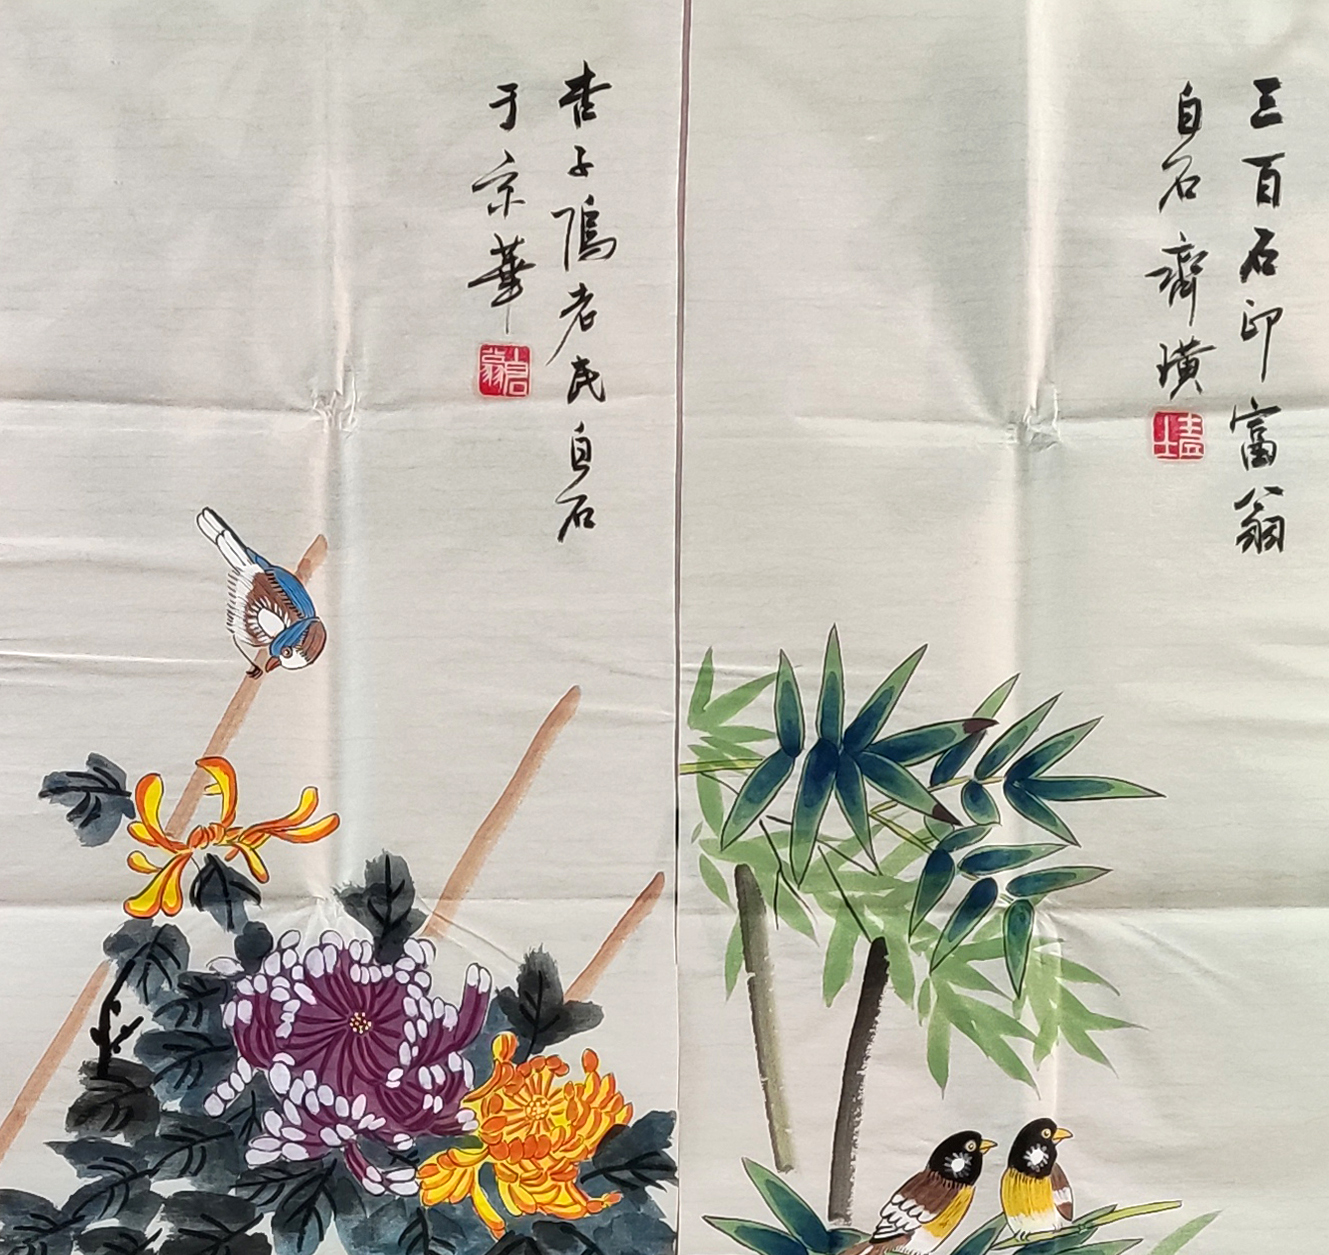 三百石印富翁
白石齊璜
杏子隖老民白石
于京華